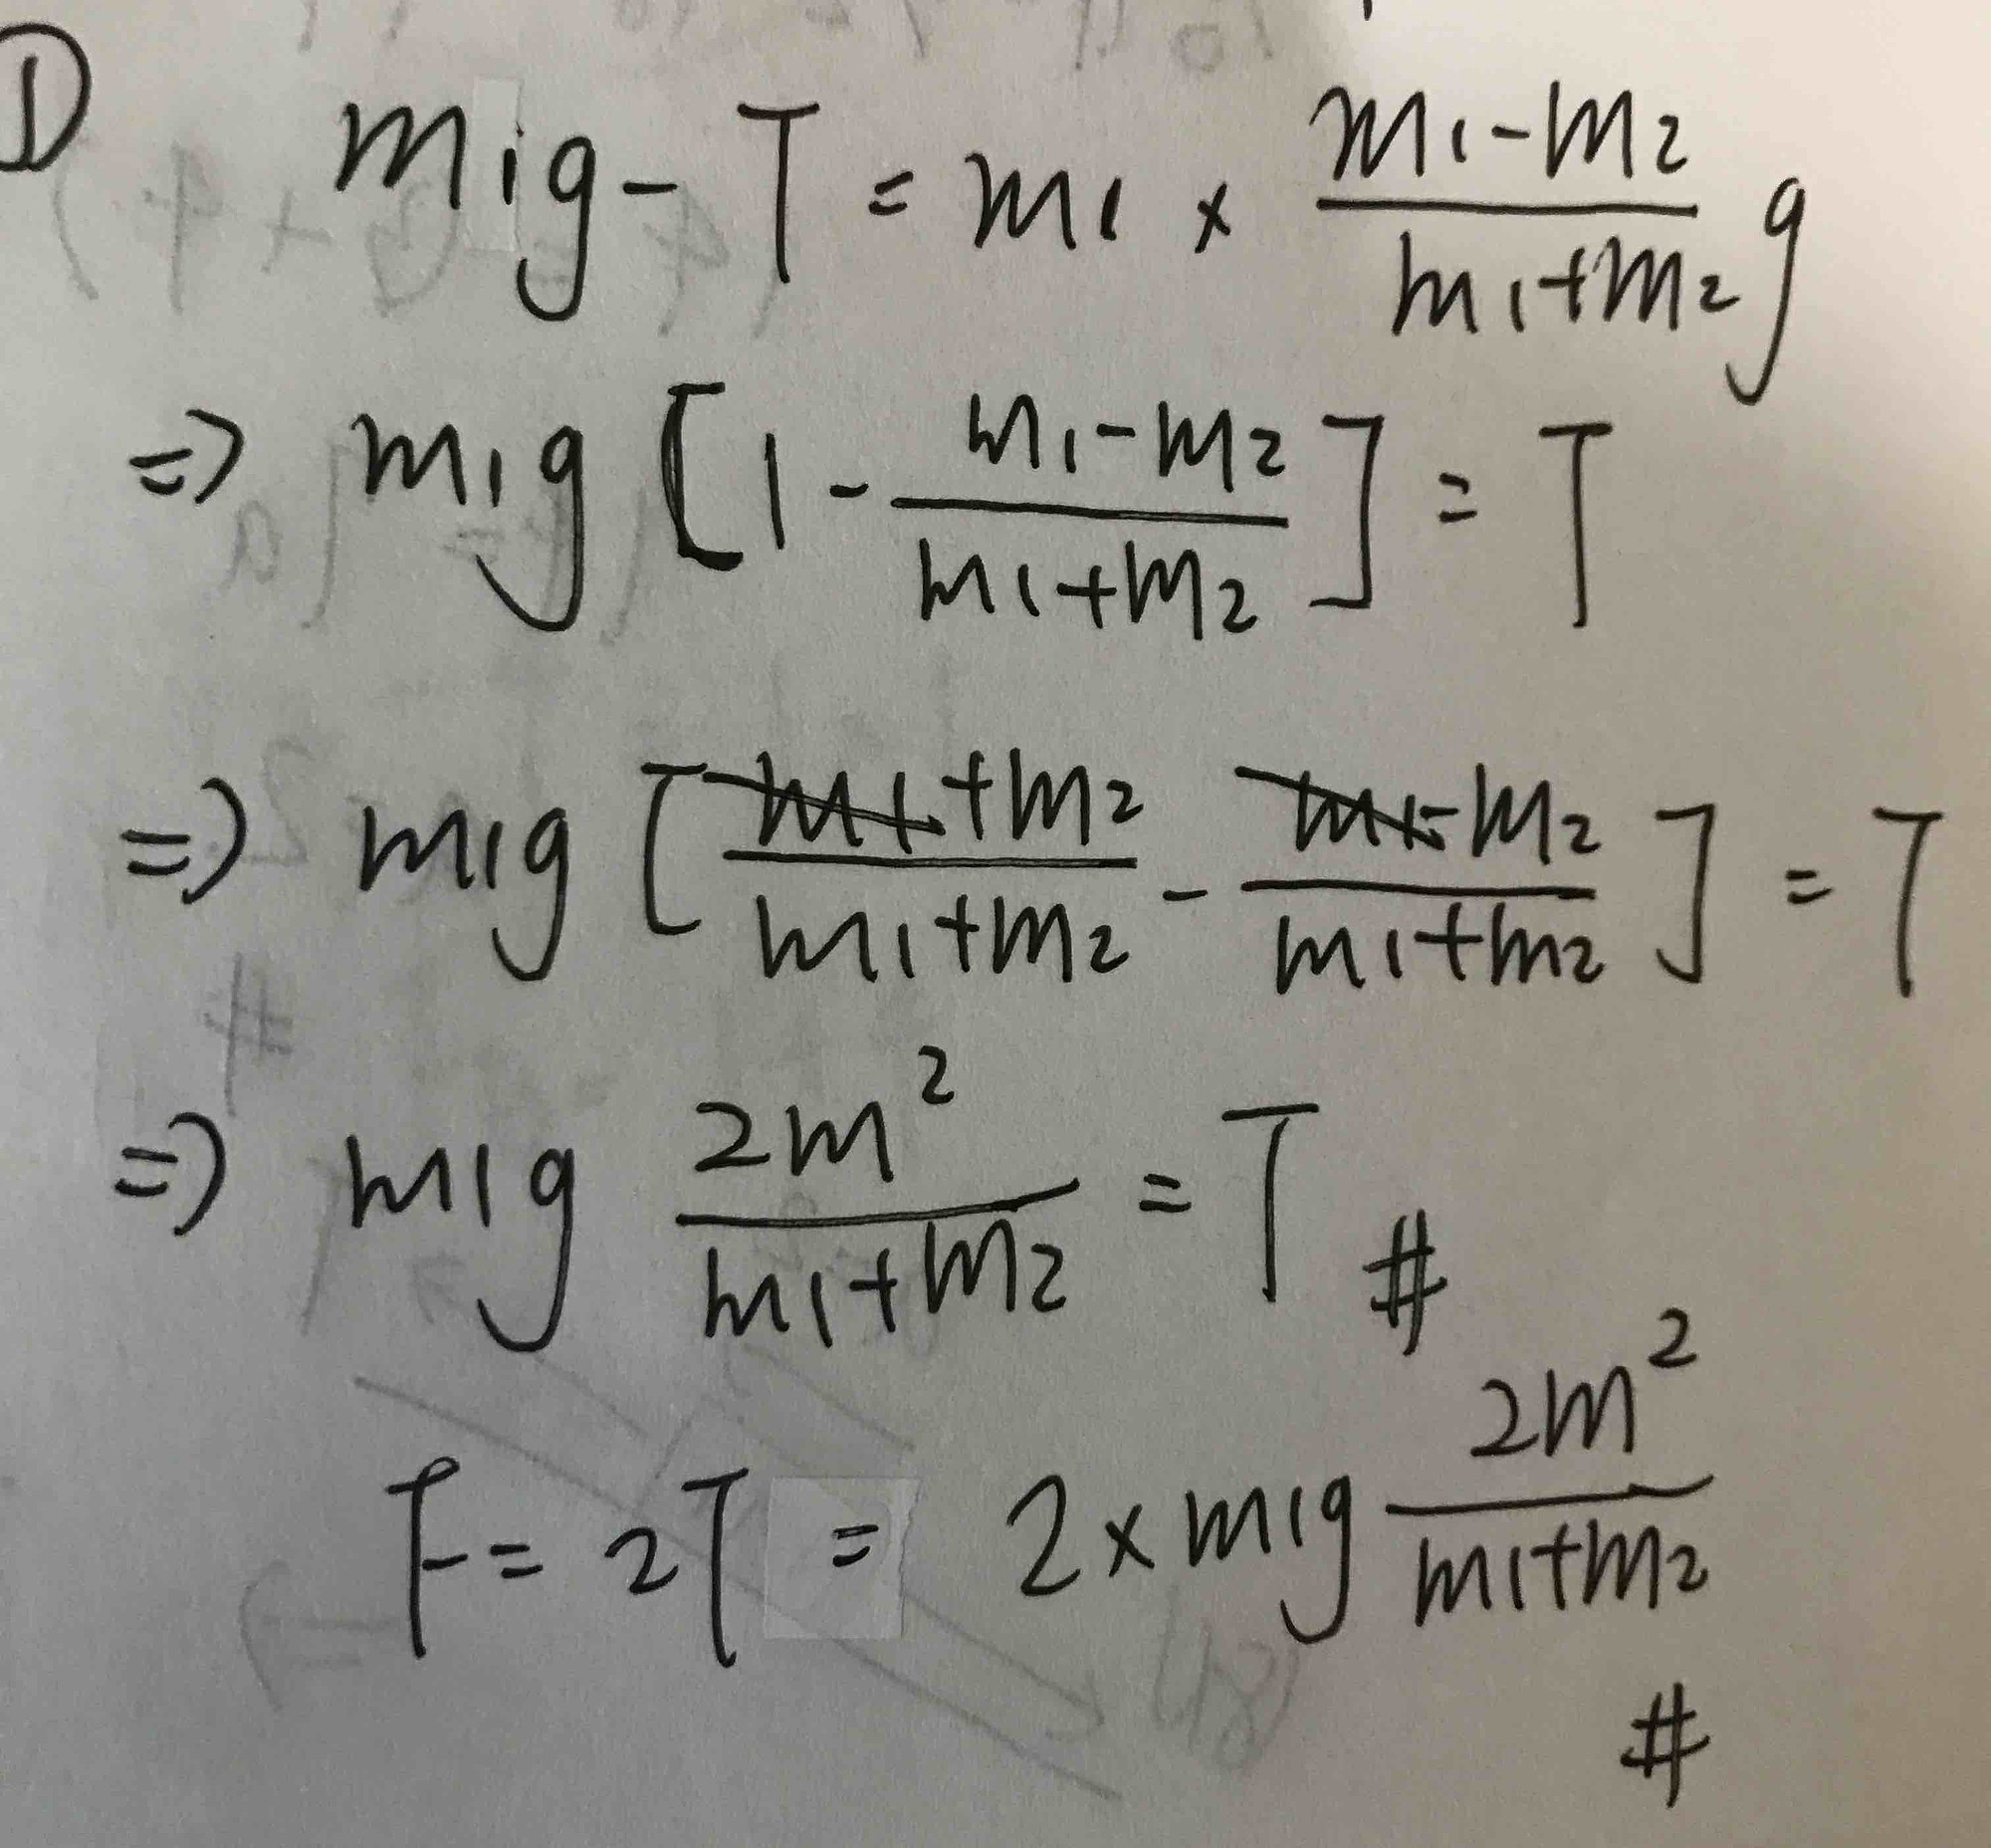 ① m₁g - T = m₁ × (m₁-m₂)/(m₁+m₂) g
⇒ m₁g [1 - (m₁-m₂)/(m₁+m₂)] = T
⇒ m₁g [(m₁+m₂)/(m₁+m₂) - (m₁-m₂)/(m₁+m₂)] = T
⇒ m₁g 2m²/(m₁+m₂) = T #
F = 2T = 2 × m₁g 2m²/(m₁+m₂) #